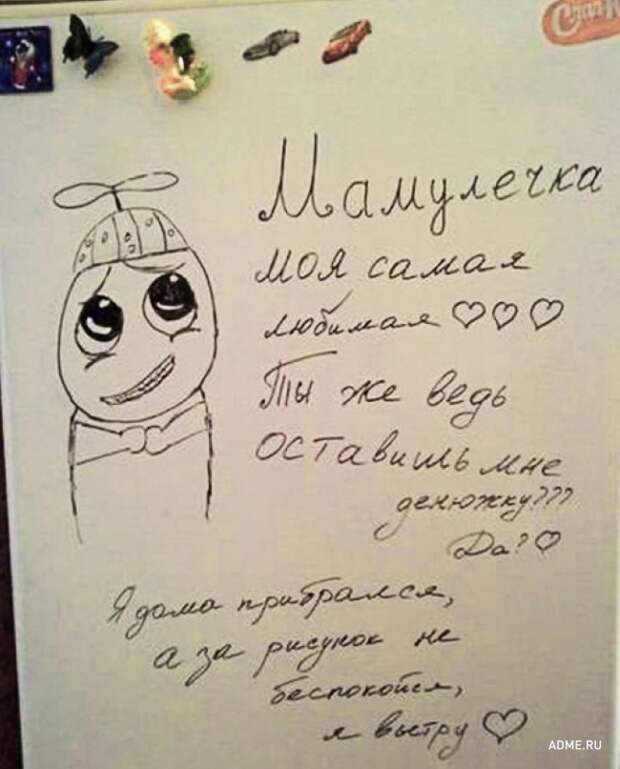 Мамулечка
моя самая
любимая ♡♡♡
Ты же ведь
оставишь мне
денюжку???
Да? ♡
Я дома прибрался,
а за рисунок не
беспокойся,
я вытру ♡
ADME.RU